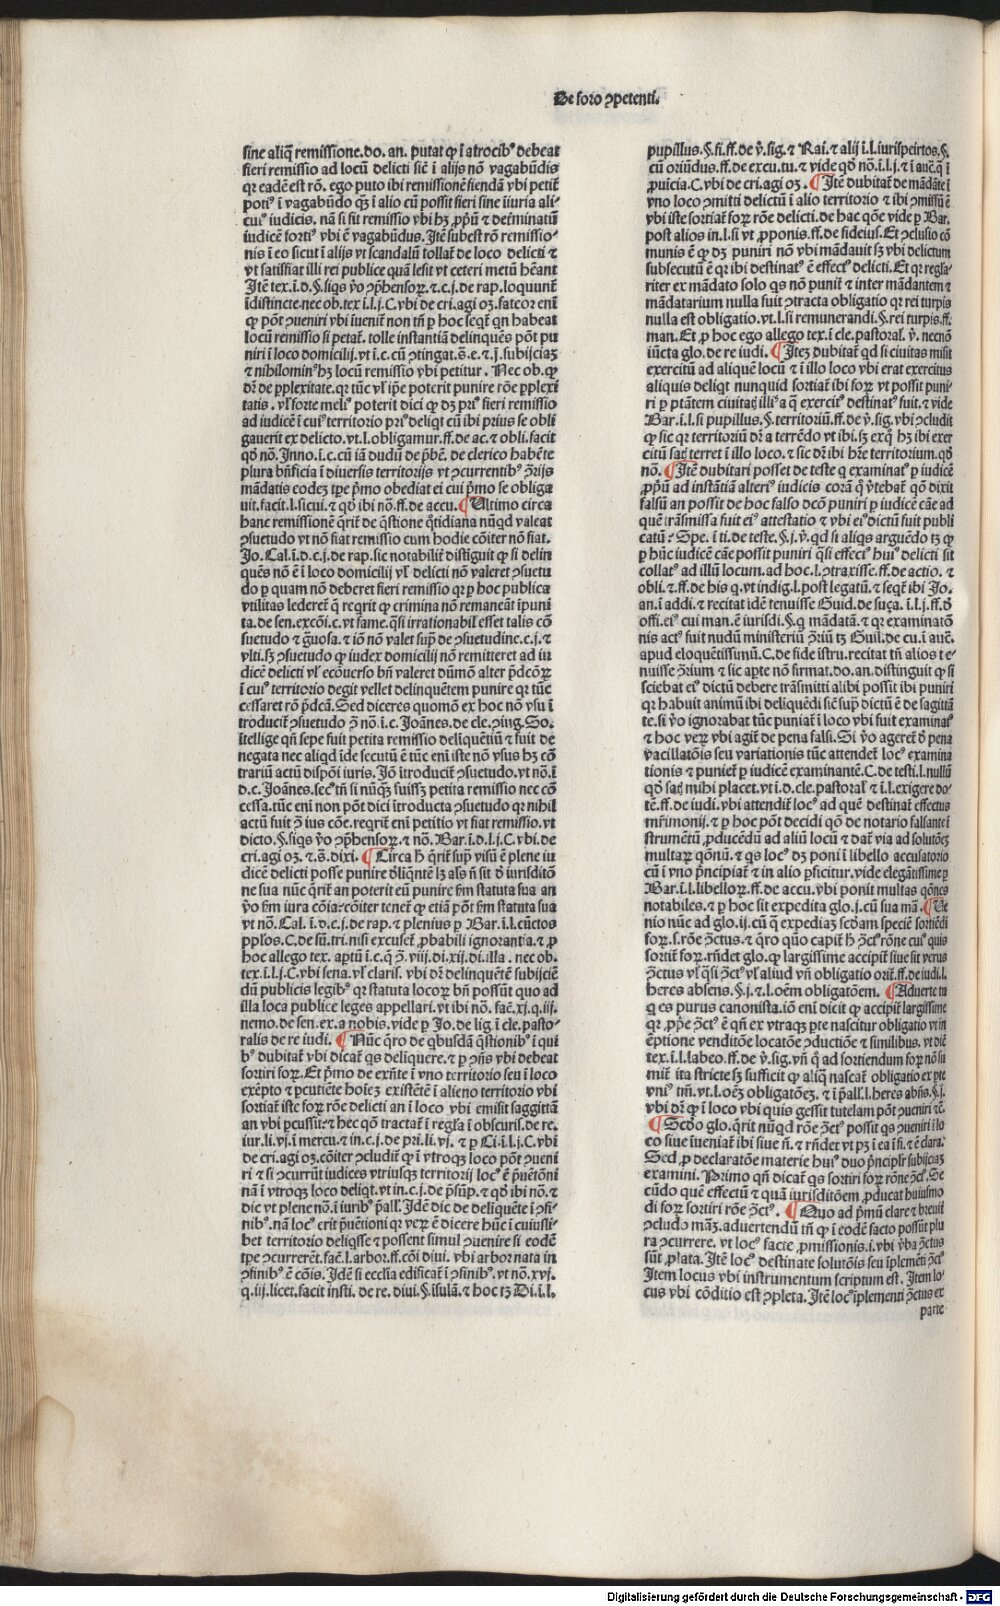 De foro ꝯpetenti.
sine aliq̃ remissione. do. an. putat ꝙ ĩ atrocibꝰ debeat
fieri remissio ad locũ delicti sic̃ ĩ alijs nõ vagabũdis
qr eadẽ est rõ. ego puto ibi remissionẽ fiendã vbi petit̃
potiꝰ ĩ vagabũdo qꝫ ĩ alio cũ possit fieri sine iniuria ali-
cuiꝰ iudicis. nã si sit remissio vbi hꝫ ꝓpriũ ⁊ determinatũ
iudicẽ fortiꝰ vbi ẽ vagabũdus. Itẽ subest rõ remissio-
nis ĩ eo sicut ĩ alijs vt scandalũ tollat̃ de loco delicti ⁊
vt satisfiat illi rei publice quã lesit vt ceteri metũ hẽant
Itẽ tex. ĩ. d. §. siqs ṽo ꝯp̃hensoꝝ. ⁊. c. j. de rap. loquunt̃
ĩdistincte. nec ob. tex ĩ. l. j. C. vbi de cri. agi oꝫ. fateor enĩ
ꝙ põt ꝯueniri vbi ĩuenit̃ non tñ ꝑ hoc seqt̃ qn habeat
locũ remissio si petat̃. tolle instantiã delinquẽs põt pu
niri ĩ loco domicilij. vt ĩ. c. cũ ꝯtingat. s̃. e. ⁊. j. subijciaꝫ
⁊ nihilominꝰ hꝫ locũ remissio vbi petitur. Nec ob. ꝙ
dr̃ de ꝑplexitate. qr tũc vl̃ ip̃e poterit punire rõe ꝑplexi
tatis. vl̃ forte meliꝰ poterit dici ꝙ dꝫ priꝰ fieri remissio
ad iudicẽ ĩ cuiꝰ territorio priꝰ deliqt cũ ibi prius se obli
gauerit ex delicto. vt. l. obligamur. ff. de ac. ⁊ obli. facit
qd̃ nõ. Inno. ĩ. c. cũ iã dudũ de p̃bẽ. de clerico habẽte
plura bñficia ĩ diuersis territorijs vt ꝯcurrentibꝰ ꝯ̃rijs
mãdatis codeꝫ tp̃e p̃mo obediat ei cui p̃mo se obliga
uit. facit. l. sicui. ⁊ qd̃ ibi nõ. ff. de accu. ¶ Ultimo circa
hanc remissionẽ q̃rit̃ de q̃stione q̃tidiana nũqd valeat
ꝯsuetudo vt nõ fiat remissio cum hodie cõiter nõ fiat.
Jo. Cal. ĩ. d. c. j. de rap. sic notabilit̃ distĩguit ꝙ si delin
quẽs nõ ẽ ĩ loco domicilij vl̃ delicti nõ valeret ꝯsuetu
do ꝑ quam nõ deberet fieri remissio qr ꝑ hoc publica
vtilitas lederet̃ q̃ reqrit ꝙ crimina nõ remaneãt ĩpuni
ta. de sen. excõi. c. vt fame. q̃si irrationabil̃ esset talis cõ
suetudo ⁊ g̃uosa. ⁊ iõ nõ valet sup̃ de ꝯsuetudine. c. j. ⁊
vlti. sꝫ ꝯsuetudo ꝙ iudex domicilij nõ remitteret ad iu
dicẽ delicti vl̃ ecõuerso bñ valeret dũmõ alter p̃dcõꝝ
ĩ cuiꝰ territorio degit vellet delinquẽtem punire qr tũc
cessaret rõ p̃dcã. Sed diceres quomõ ex hoc nõ vsu ĩ
troducit̃ ꝯsuetudo ꝯ̃ nõ. ĩ. c. Joãnes. de cle. ꝯiug. So.
ĩtellige qñ sepe fuit petita remissio deliquẽtiũ ⁊ fuit de
negata nec aliqd ĩde secutũ ẽ tũc enĩ iste nõ vsus hꝫ cõ
trariũ actũ dispõi iuris. Jõ ĩtroducit̃ ꝯsuetudo. vt nõ. ĩ
d. c. Joãnes. secꝰ tñ si nũqꝫ fuissꝫ petita remissio nec cõ
cessa. tũc enĩ non põt dici ĩtroducta ꝯsuetudo qr nihil
actũ fuit ꝯ̃ ius cõe. reqrit̃ enĩ petitio vt fiat remissio. vt
dicto. §. siqs ṽo ꝯp̃hensoꝝ. ⁊ nõ. Bar. ĩ. d. l. j. C. vbi. de
cri. agi oꝫ. ⁊. s̃. dixi. ¶ Circa h̃ q̃rit̃ sup̃ visũ ẽ plene iu
dicẽ delicti posse punire dl̃iqñtẽ lꝫ als̃ ñ sit d̃ iurisditõ
ne sua nũc q̃rit̃ an poterit eũ punire s̃m statuta sua an
ṽo s̃m iura cõia: cõiter tenet̃ ꝙ etiã põt s̃m statuta sua
vt nõ. Cal. ĩ. d. c. j. de rap. ⁊ plenius ꝑ Bar. ĩ. l. cũctos
pp̃los. C. de sũ. tri. nisi excuset̃ ꝓbabili ignorantia. ⁊ ꝑ
hoc allego tex. aꝑtũ ĩ. c. q̃ ꝯ̃. viij. di. xij. di. illa. nec ob.
tex. ĩ. l. j. C. vbi sena. vl̃ claris. vbi dr̃ delinquẽtẽ subijciẽ
dũ publicis legibꝰ qr statuta locoꝝ bñ possũt quo ad
illa loca publice leges appellari. vt ibi nõ. facũ. xj. q. iij.
nemo. de sen. ex. a nobis. vide ꝑ Jo. de lig. ĩ cle. pasto-
ralis de re iudi. ¶ Nũc q̃ro de q̃busdã q̃stionibꝰ ĩ qui
bꝰ dubitat̃ vbi dicat̃ qs deliquere. ⁊ ꝑ ꝯñs vbi debeat
sortiri foꝝ. Et p̃mo de exñte ĩ vno territorio seu ĩ loco
exẽpto ⁊ ꝑcutiẽte hoĩeꝫ existẽtẽ ĩ alieno territorio vbi
sortiat̃ iste foꝝ rõe delicti an ĩ loco vbi emisit saggittã
an vbi ꝑcussit̃: ⁊ hec qõ tractat̃ ĩ regl̃a ĩ obscuris. de re.
iur. li. vj. ĩ mercu. ⁊ in. c. j. de pri. li. vj. ⁊ ꝑ Ci. ĩ. l. j. C. vbi
de cri. agi oꝫ. cõiter ꝯcludit̃ ꝙ ĩ vtroqꝫ loco põt ꝯueni
ri ⁊ si ꝯcurrũt iudices vtriusqꝫ territorij locꝰ ẽ p̃uẽtõni
nã ĩ vtroqꝫ loco deliqt. vt in. c. j. de p̃sũp. ⁊ qd̃ ibi nõ. ⁊
dic vt plene nõ. ĩ iuribꝰ p̃all̃. Idẽ dic de deliquẽte ĩ ꝯfi-
nibꝰ. nã locꝰ erit p̃uẽtioni qr veꝝ ẽ dicere hũc ĩ cuiusli-
bet territorio deliqsse ⁊ possent simul ꝯuenire si eodẽ
tp̃e ꝯcurrerẽt. faẽ. l. arbor. ff. cõi diui. vbi arbor nata in
ꝯfinibꝰ ẽ cõis. Idẽ si ecclĩa edificat̃ ĩ ꝯfinibꝰ. vt nõ. xvj.
q. iij. licet. facit insti. de re. diui. §. isulã. ⁊ hoc tꝫ Di. ĩ. l.
pupillus. §. fi. ff. de ṽ. sig. ⁊ Rai. ⁊ alij ĩ. l. iurispeirtos. §.
cũ oriũdus. ff. de excu. tu. ⁊ vide qd̃ nõ. ĩ. l. j. ⁊ ĩ auẽ. q̃ ĩ
ꝓuĩcia. C. vbi de cri. agi oꝫ. ¶ Itẽ dubitat̃ de mãdãte ĩ
vno loco ꝯmitti delictũ ĩ alio territorio ⁊ ibi ꝯmissũ ẽ
vbi iste sortiat̃ foꝝ rõe delicti. de hac qõe vide ꝑ Bar.
post alios in. l. si vt ꝓponis. ff. de fideius. Et ꝯclusio cõ
munis ẽ ꝙ dꝫ puniri nõ vbi mãdauit sꝫ vbi delictum
subsecutũ ẽ qr ibi destinatꝰ ẽ effectꝰ delicti. Et qr regla-
riter ex mãdato solo qs nõ punit̃ ⁊ inter mãdantem ⁊
mãdatarium nulla fuit ꝯtracta obligatio qr rei turpis
nulla est obligatio. vt. l. si remunerandi. §. rei turpis. ff.
man. Et ꝓ hoc ego allego tex. ĩ cle. pastoral̃. ṽ. necnõ
iũcta glo. de re iudi. ¶ Iteꝫ dubitat̃ qd si ciuitas misit
exercitũ ad aliquẽ locũ ⁊ ĩ illo loco vbi erat exercitus
aliquis deliqt nunquid sortiat̃ ibi foꝝ vt possit puni-
ri ꝑ ptãtem ciuitat̃ illiꝰ a q̃ exercitꝰ destinatꝰ fuit. ⁊ vide
Bar. ĩ. l. si pupillus. §. territoriũ. ff. de ṽ. sig. vbi ꝯcludit
ꝙ sic qr territoriũ dr̃ a terrẽdo vt ibi. sꝫ exq̃ hꝫ ibi exer
citũ satꝭ terret ĩ illo loco. ⁊ sic dr̃ ibi hr̃e territorium. qd̃
nõ. ¶ Itẽ dubitari posset de teste q̃ examinatꝰ ꝑ iudicẽ
ꝓpriũ ad instãtiã alteriꝰ iudicis corã q̃ ṽtebat̃ qõ dixit
falsũ an possit de hoc falso dcõ puniri ꝑ iudicẽ cãe ad
quẽ trãsmissa fuit eiꝰ attestatio ⁊ vbi eiꝰ dictũ fuit publi
catũ? Spe. ĩ ti. de teste. §. j. ṽ. qd si aliqs arguẽdo tꝫ ꝙ
ꝑ hũc iudicẽ cãe possit puniri q̃si effectꝰ huiꝰ delicti sit
collatꝰ ad illũ locum. ad hoc. l. ꝯtraxisse. ff. de actio. ⁊
obli. ⁊ ff. de his q. vt indig. l. post legatũ. ⁊ seqt̃ ibi Jo.
an. ĩ addi. ⁊ recitat idẽ tenuisse Guid. de suça. ĩ. l. j. ff. d̃
offi. eiꝰ cui man. ẽ iurisdi. §. q̃ mãdatã. ⁊ qr examinatõ
nis actꝰ fuit nudũ ministeriũ ꝯ̃riũ tꝫ Guil. de cu. ĩ auẽ.
apud eloquẽtissimũ. C. de fide ĩstru. recitat tñ alios te-
nuisse ꝯ̃rium ⁊ sic aꝑte nõ firmat. do. an. distinguit ꝙ si
sciebat eiꝰ dictũ debere trãsmitti alibi possit ibi puniri
qr habuit animũ ibi deliquẽdi sic̃ sup̃ dictũ ẽ de sagittã
te. si ṽo ignorabat tũc puniat̃ ĩ loco vbi fuit examinatꝰ
⁊ hoc veꝝ vbi agit̃ de pena falsi. Si ṽo ageret̃ d̃ pena
vacillatõis seu variationis tũc attendet̃ locꝰ examina
tionis ⁊ puniet̃ ꝑ iudicẽ examinantẽ. C. de testi. l. nullũ
qd̃ satꝭ mihi placet. vt ĩ. d. cle. pastoral̃ ⁊ ĩ. l. exigere do-
tẽ. ff. de iudi. vbi attendit̃ locꝰ ad quẽ destinat̃ effectus
mr̃imonij. ⁊ ꝑ hoc põt decidi qõ de notario falsante ĩ
strumẽtũ ꝓducẽdũ ad aliũ locũ ⁊ dat̃ via ad solutõeꝫ
multaꝝ qõnũ. ⁊ qs locꝰ dꝫ poni ĩ libello accusatorio
cũ ĩ vno p̃ncipiat̃ ⁊ in alio ꝑficitur. vide elegãtissime ꝑ
Bar. ĩ. l. libelloꝝ. ff. de accu. vbi ponit multas qõnes
notabiles. ⁊ ꝑ hoc sit expedita glo. j. cũ sua mã. ¶ Ve
nio nũc ad glo. ij. cũ q̃ expediaꝫ scdam speciẽ sortiẽdi
foꝝ. s. rõe ꝯ̃ctus. ⁊ q̃ro quo capit̃ h̃ ꝯ̃ctꝰ rõne cuiꝰ quis
sortit̃ foꝝ. rñdet glo. ꝙ largissime accipit̃ siue sit verus
ꝯ̃ctus vl̃ q̃si ꝯ̃ctꝰ vl̃ aliud vñ obligatio orit̃. ff. de iudi. l.
heres absens. §. j. ⁊. l. oẽm obligatõem. ¶ Aduerte tu
q es purus canonista. iõ enĩ dicit ꝙ accipit̃ largissime
qr ꝓprie ꝯ̃ctꝰ ẽ qñ ex vtraqꝫ ꝑte nascitur obligatio vt in
ẽptione venditõe locatõe ꝯductiõe ⁊ similibus. vt dic̃
tex. ĩ. l. labeo. ff. de ṽ. sig. vñ q̃ ad sortiendum foꝝ nõ su
mit̃ ita stricte sꝫ sufficit ꝙ aliq̃ nascat̃ obligatio ex ꝑte
vniꝰ tm̃. vt. l. oẽꝫ obligatõeꝫ. ⁊ ĩ p̃all̃. l. heres abñs. §. j.
vbi dr̃ ꝙ ĩ loco vbi quis gessit tutelam põt ꝯueniri ⁊c̃.
¶ Scdo glo. q̃rit nũqd rõe ꝯ̃ctꝰ possit qs ꝯueniri ĩ lo
co siue ĩueniat̃ ibi siue ñ. ⁊ rñdet vt pꝫ ĩ ea ĩ fi. ⁊ ẽ clara.
Sed ꝓ declaratõe materie huiꝰ duo p̃ncipl̃r subijciaꝫ
examini. Primo qñ dicat̃ qs sortiri foꝝ rõne ꝯ̃ctꝰ. Se
cũdo quẽ effectũ ⁊ quã iurisditõem ꝓducat huiusmo
di foꝝ sortiri rõe ꝯ̃ctꝰ. ¶ Quo ad p̃mũ clare ⁊ breuit̃
ꝯcludo mãꝫ. aduertendũ tñ ꝙ ĩ eodẽ facto possũt plu
ra ꝯcurrere. vt locꝰ facte ꝓmissionis. i. vbi ṽba ꝯ̃ctus
sũt ꝓlata. Itẽ locꝰ destinate solutõis seu ĩplemẽti ꝯ̃ctꝰ
Item locus vbi instrumentum scriptum est. Item lo-
cus vbi cõditio est ꝯpleta. Itẽ locꝰ ĩplementi ꝯ̃ctus ex
parte
Digitalisierung gefördert durch die Deutsche Forschungsgemeinschaft - DFG